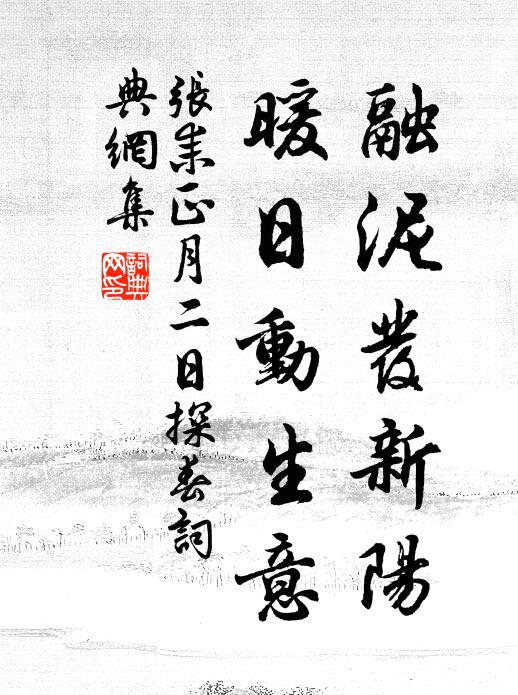 融泥發新陽
暖日動生意
張耒正月二日探春詞
典網集
詞典網印